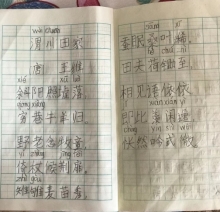 wèi chuān
渭川田家
唐 王维
xié xū luò
斜阳照墟落
qióng xiàng
穷巷牛羊归
野老念牧童
yǐ zhàng hòu jīng fēi
倚杖候荆扉
zhì gòu
雉雊麦苗秀
cán
蚕眠桑叶稀
田夫荷锄至
相见语依依
即此羡闲逸
怅然吟式微